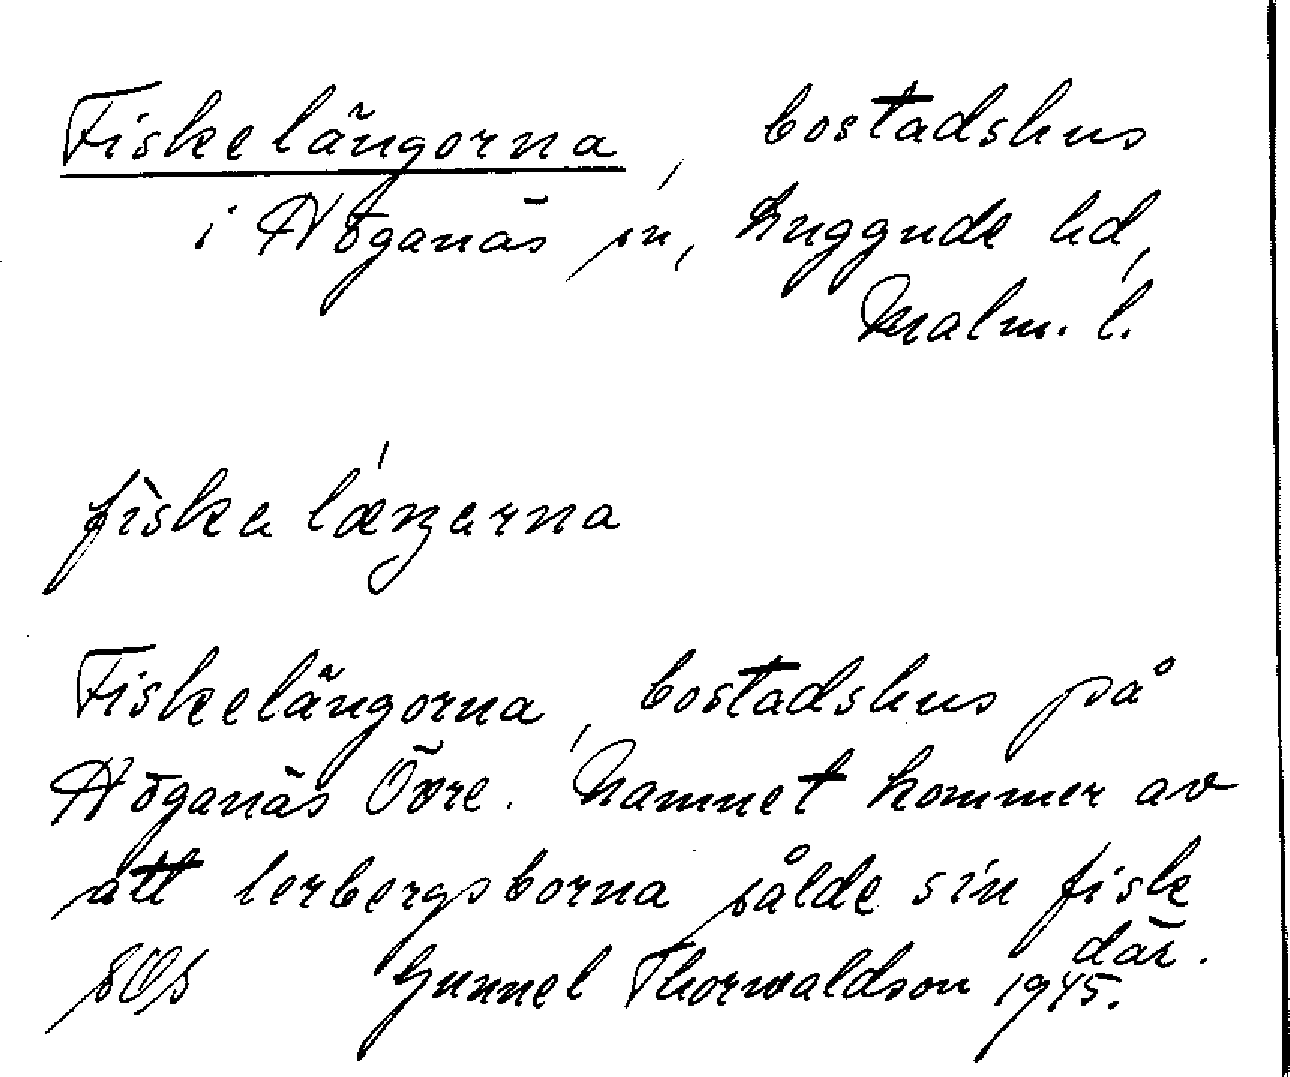 Fiskelängorna, bostadshus
i Höganäs sn, Luggude hd,
Malm. l.
fiska læŋarna
Fiskelängorna, bostadshus på
Höganäs Övre. Namnet kommer av
att lerbergsborna sålde sin fisk
där.
Gunnel Thorwaldson 1945.